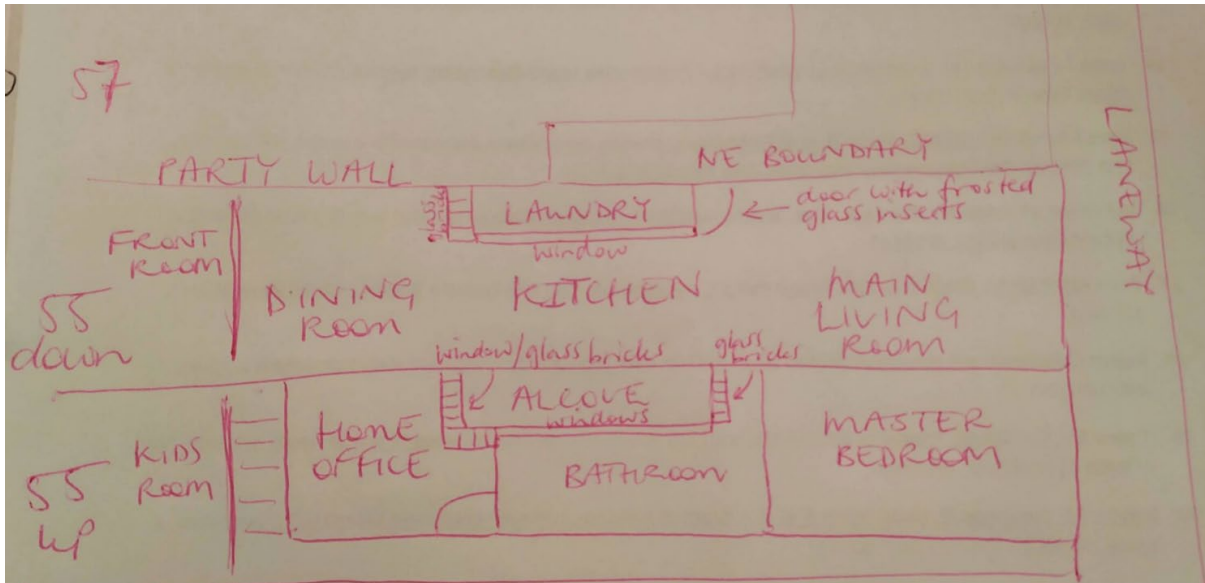 57
PARTY WALL
NE BOUNDARY
LANEWAY
glass
bricks
LAUNDRY
window
door with frosted
glass inserts
FRONT
ROOM
DINING
ROOM
KITCHEN
MAIN
LIVING
ROOM
55
down
window/glass bricks
glass
bricks
ALCOVE
windows
HOME
OFFICE
BATHROOM
MASTER
BEDROOM
KIDS
ROOM
55
up